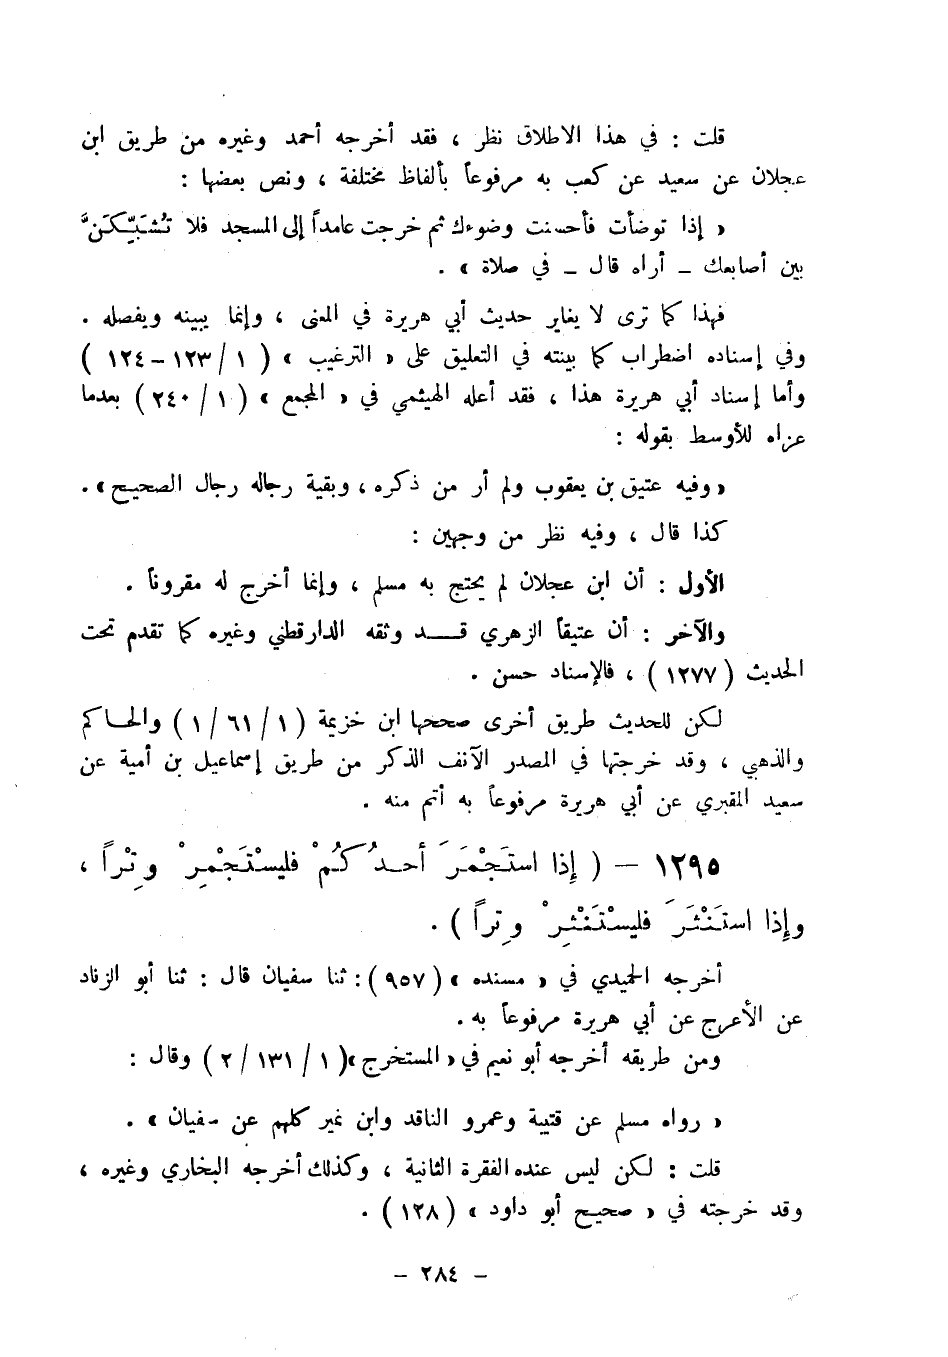 قلت : في هذا الاطلاق نظر ، فقد أخرجه أحمد وغيره من طريق ابن
عجلان عن سعيد عن كعب به مرفوعاً بألفاظ مختلفة ، ونص بعضها :
« إذا توضأت فأحسنت وضوءك ثم خرجت عامداً إلى المسجد فلا تُشَبِّكَنَّ
بين أصابعك – أراه قال – في صلاة » .
فهذا كما ترى لا يغاير حديث أبي هريرة في المعنى ، وإنما يبينه ويفصله .
وفي إسناده اضطراب كما بينته في التعليق على « الترغيب » ( ١ / ١٢٣ – ١٢٤ )
وأما إسناد أبي هريرة هذا ، فقد أعله الهيثمي في « المجمع » ( ١ / ٢٤٠ ) بعدما
عزاه للأوسط بقوله :
« وفيه عتيق بن يعقوب ولم أر من ذكره ، وبقية رجاله رجال الصحيح » .
كذا قال ، وفيه نظر من وجهين :
الأول : أن ابن عجلان لم يحتج به مسلم ، وإنما أخرج له مقروناً .
والآخر : أن عتيقاً الزهري قد وثقه الدارقطني وغيره كما تقدم تحت
الحديث ( ١٢٧٧ ) ، فالإسناد حسن .
لكن للحديث طريق أخرى صححها ابن خزيمة ( ١ / ٦١ / ١ ) والحاكم
والذهبي ، وقد خرجتها في المصدر الآنف الذكر من طريق إسماعيل بن أمية عن
سعيد المقبري عن أبي هريرة مرفوعاً به أتم منه .
١٢٩٥ – ( إِذا استَجْمَرَ أحدُكُمْ فليسْتَجْمِرْ وِتْراً ،
وإِذا استَنْثَرَ فليسْتَنْثِرْ وِتراً ) .
أخرجه الحميدي في « مسنده » ( ٩٥٧ ) : ثنا سفيان قال : ثنا أبو الزناد
عن الأعرج عن أبي هريرة مرفوعاً به .
ومن طريقه أخرجه أبو نعيم في « المستخرج » ( ١ / ١٣١ / ٢ ) وقال :
« رواه مسلم عن قتيبة وعمرو الناقد وابن نمير كلهم عن سفيان » .
قلت : لكن ليس عنده الفقرة الثانية ، وكذلك أخرجه البخاري وغيره ،
وقد خرجته في « صحيح أبو داود » ( ١٢٨ ) .
– ٢٨٤ –